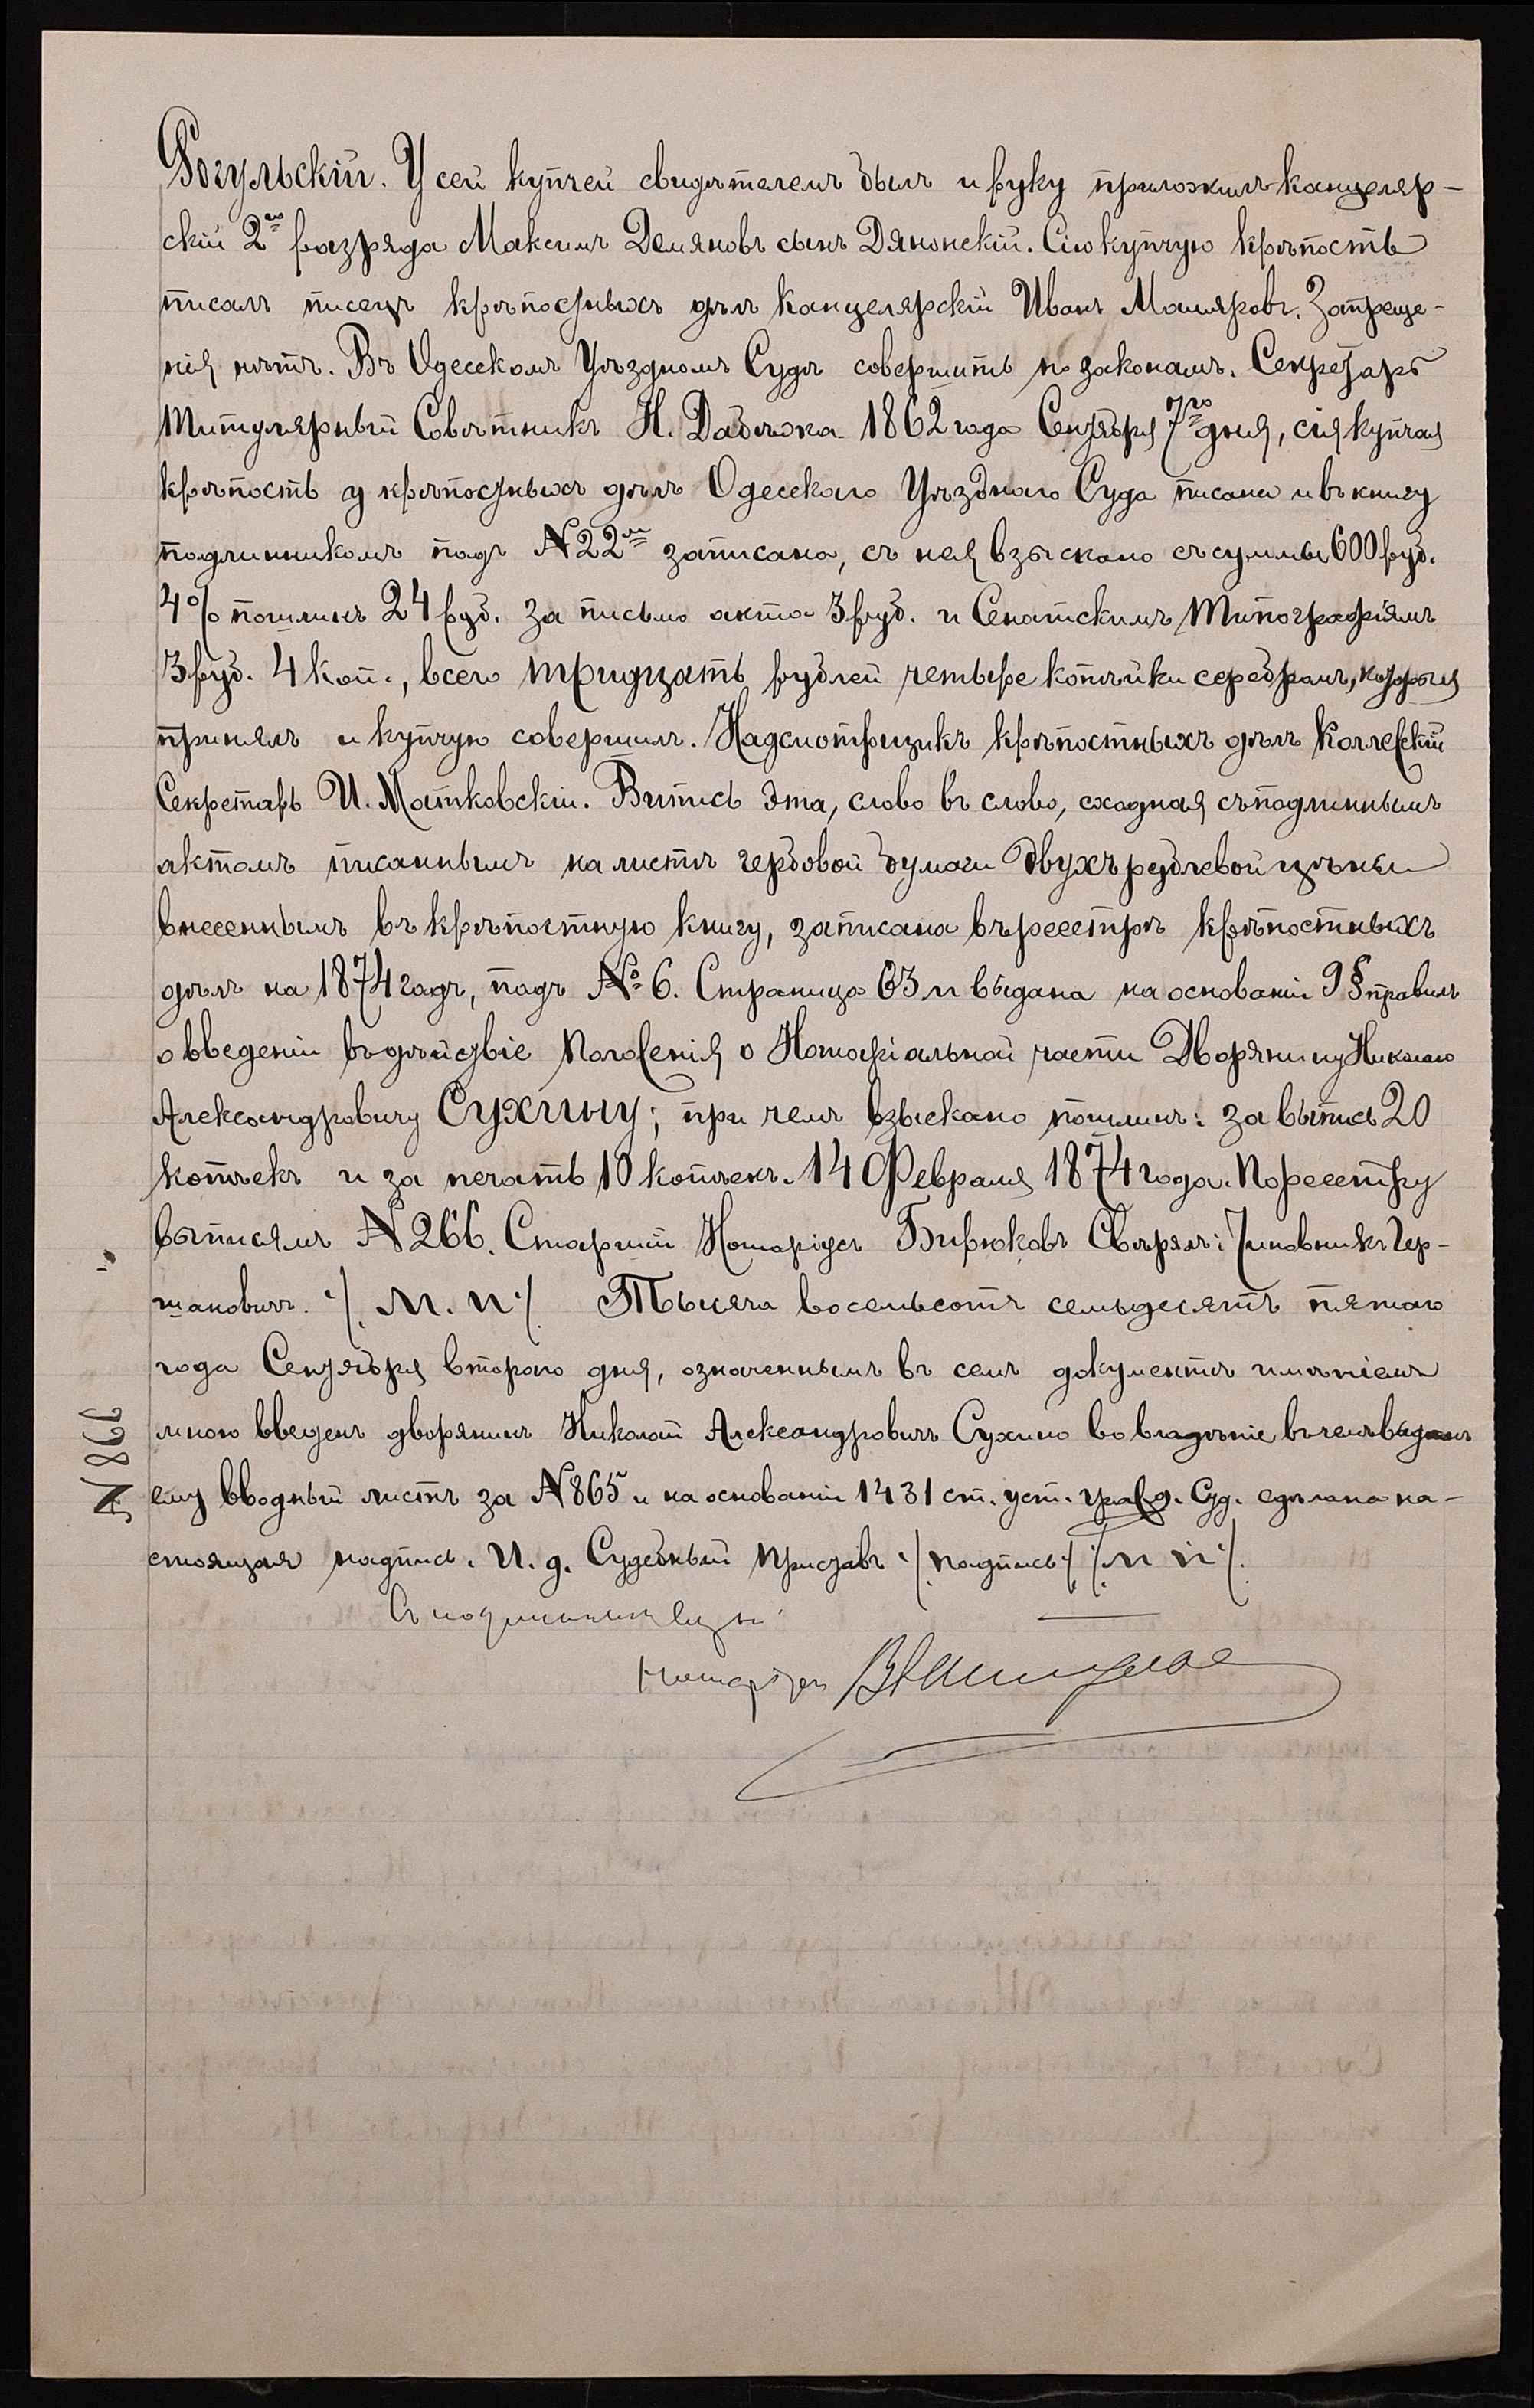 Рогульскій. У сей купчей свидѣтелемъ былъ и руку приложилъ канцеляр-
скій 2го разряда Максимъ Демяновъ сынъ Дяконскій. Сію купчую крѣпость
писалъ писецъ крѣпостныхъ дѣлъ канцелярскій Иванъ Маляровъ. Запреще-
нія нѣтъ. Въ Одесскомъ Уѣздномъ Судѣ совершить по законамъ. Секретарь
Титулярный Совѣтникъ Н. Дабижа 1862 года Сентября 7го дня, сія купчая
крѣпость у крѣпостныхъ дѣлъ Одесскаго Уѣзднаго Суда писана и въ книгу
подлинникомъ подъ N 22мъ записана, съ нея взыскано съ суммы 600 руб.
4% пошлинъ 24 руб. за письмо акта 3 руб. и Сенатскимъ Типографіямъ
3 руб. 4 коп., всего тридцать рублей четыре копѣйки серебромъ, которыя
принялъ и купчую совершилъ. Надсмотрщикъ крѣпостныхъ дѣлъ Коллежскій
Секретарь И. Матковскій. Выпись эта, слово въ слово, сходная съ подлиннымъ
актомъ писаннымъ на листѣ гербовой бумаги двухъ рублевой цѣны
внесеннымъ въ крѣпостную книгу, записана въ реестрѣ крѣпостныхъ
дѣлъ на 1874 годъ, подъ № 6. Страница 63 и выдана на основаніи 9 § правилъ
о введеніи въ дѣйствіе Положенія о Нотаріальной части Дворянину Николаю
Александровичу Сухину; при чемъ взыскано пошлинъ: за выпись 20
копѣекъ и за печать 10 копѣекъ. 14 Февраля 1874 года. По реестру
выписямъ N 266. Старшій Нотаріусъ Бирюковъ Свѣрялъ: Чиновникъ Гер-
шановичъ. /. М. П ./ Тысяча восемьсотъ семьдесятъ пятаго
года Сентября втораго дня, означеннымъ въ семъ документѣ имѣніемъ
мною введенъ дворянинъ Николай Александровичъ Сухино во владѣніе въ чемъ выданъ
ему вводный листъ за N 865 и на основаніи 1431 ст. уст. гражд. Суд. сдѣлана на-
стоящая надпись. И. д. Судебный Приставъ /. подпись ./ /. М П ./.
N 866
Съ подлиннымъ вѣрно
Нотаріусъ